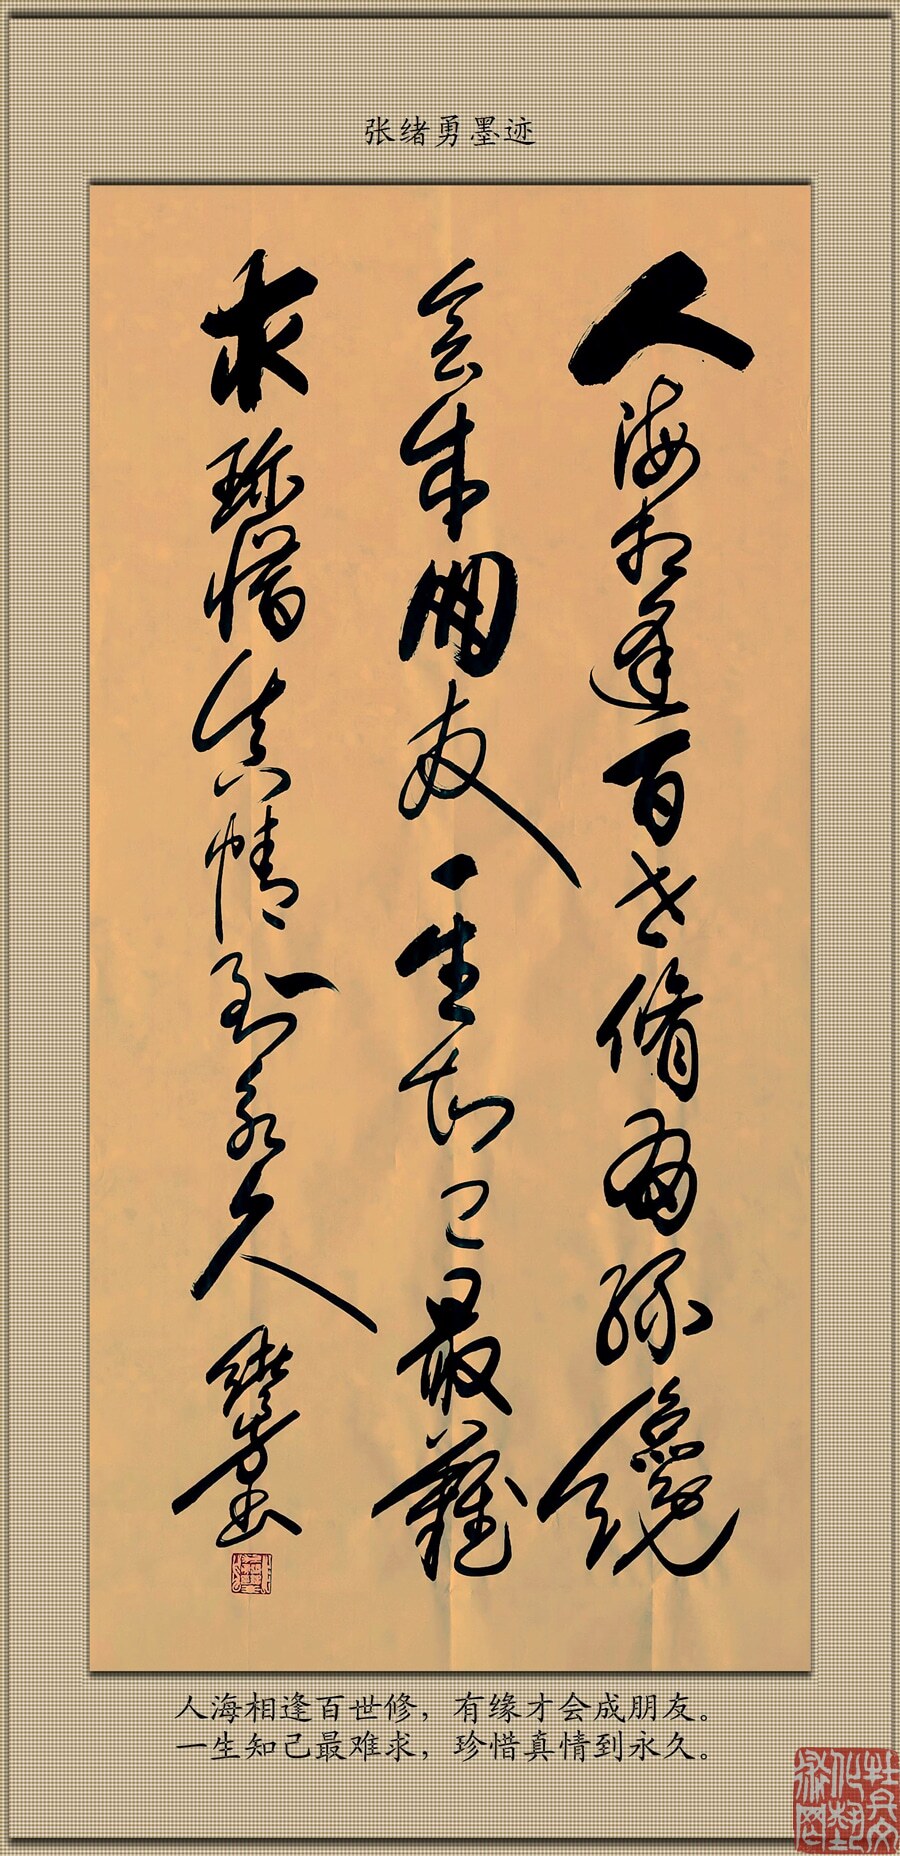 张绪勇墨迹
人海相逢百世修有缘才
会成朋友一生知己最难
求珍惜真情到永久 绪勇书
人海相逢百世修，有缘才会成朋友。
一生知己最难求，珍惜真情到永久。